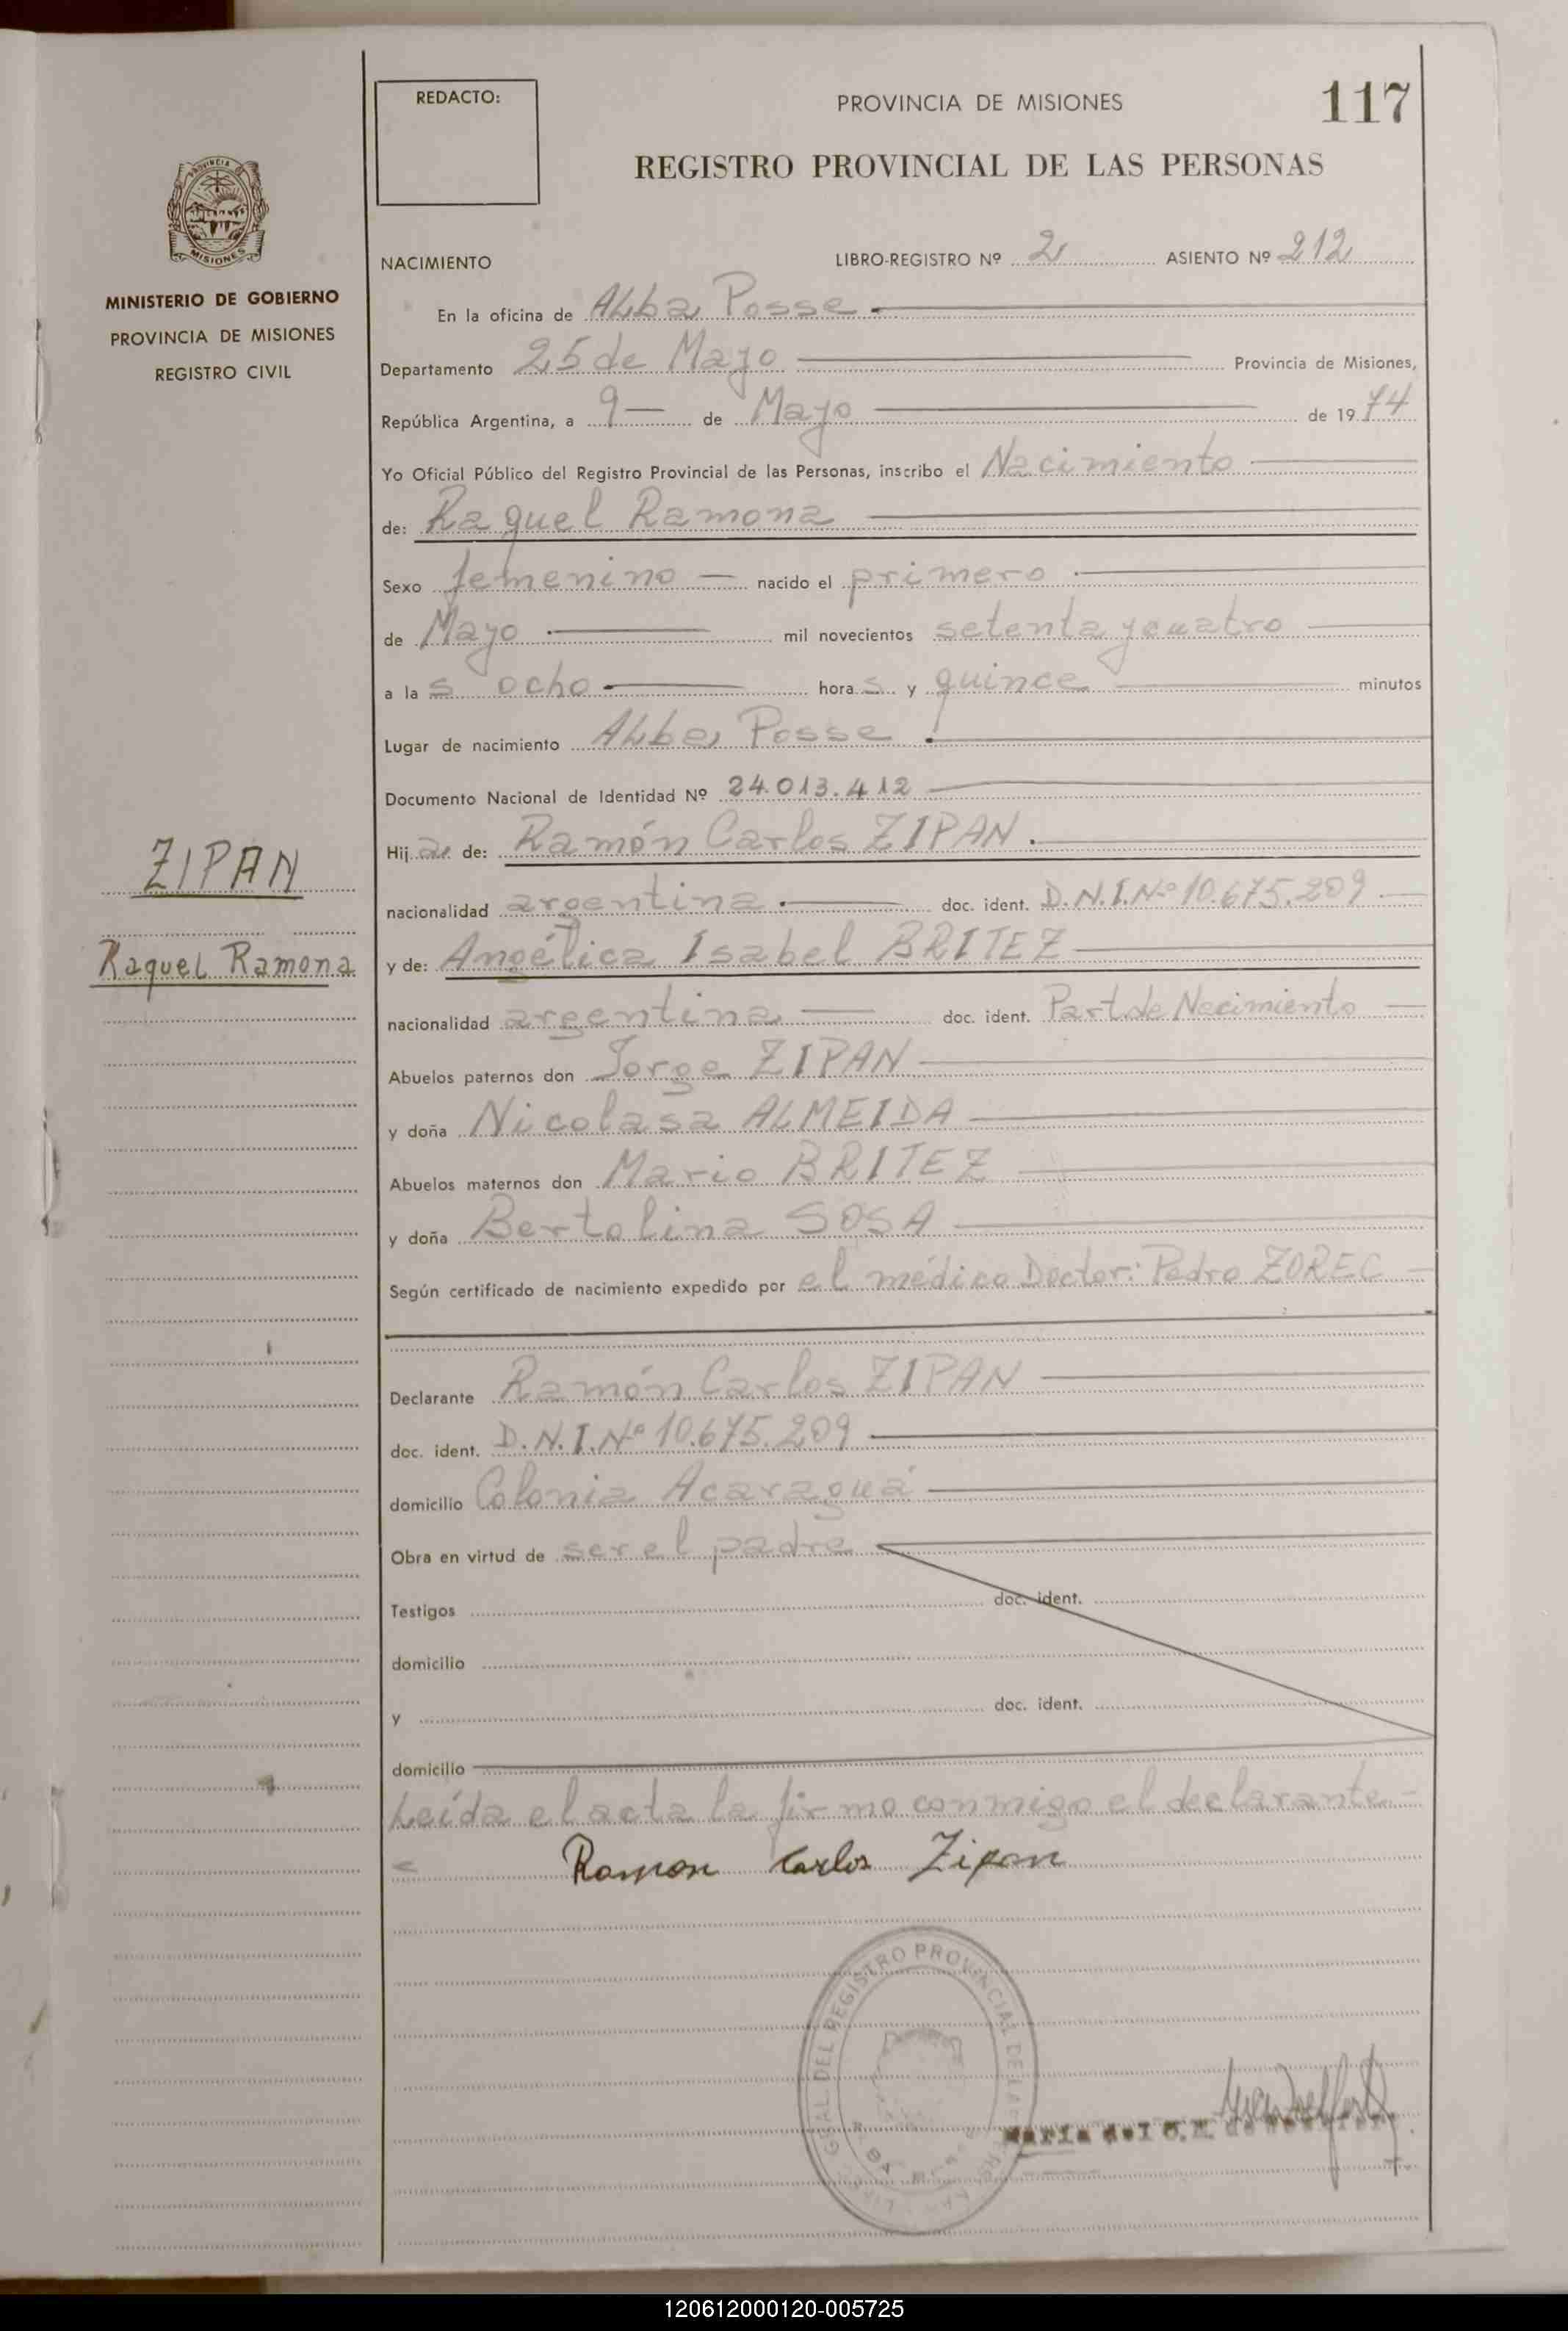 REDACTO:
PROVINCIA DE MISIONES
117
REGISTRO PROVINCIAL DE LAS PERSONAS
PROVINCIA
MISIONES
MINISTERIO DE GOBIERNO
PROVINCIA DE MISIONES
REGISTRO CIVIL
NACIMIENTO LIBRO-REGISTRO Nº 2 ASIENTO Nº 212
En la oficina de Alba Posse
Departamento 25 de Mayo Provincia de Misiones,
República Argentina, a 9 de Mayo de 1974
Yo Oficial Público del Registro Provincial de las Personas, inscribo el Nacimiento
de: Raquel Ramona
Sexo femenino nacido el primero
de Mayo mil novecientos setenta y cuatro
a las ocho horas y quince minutos
Lugar de nacimiento Alba Posse
Documento Nacional de Identidad Nº 24.013.412
ZIPAN
Raquel Ramona
Hija de: Ramón Carlos ZIPAN.
nacionalidad argentina doc. ident. D.N.I.Nº 10.675.209
y de: Angélica Isabel BRITEZ
nacionalidad argentina doc. ident. Part de Nacimiento
Abuelos paternos don Jorge ZIPAN
y doña Nicolasa ALMEIDA
Abuelos maternos don Mario BRITEZ
y doña Bertolina SOSA
Según certificado de nacimiento expedido por el médico Doctor: Pedro ZOREC
Declarante Ramón Carlos ZIPAN
doc. ident. D.N.I.Nº 10.675.209
domicilio Colonia Acaraguá
Obra en virtud de ser el padre
Testigos doc. ident.
domicilio
y doc. ident.
domicilio
Leída el acta la firmo conmigo el declarante
Ramon Carlos Zipan
GRAL DEL REGISTRO PROVINCIAL DE LAS
Maria del C. M. de
120612000120-005725